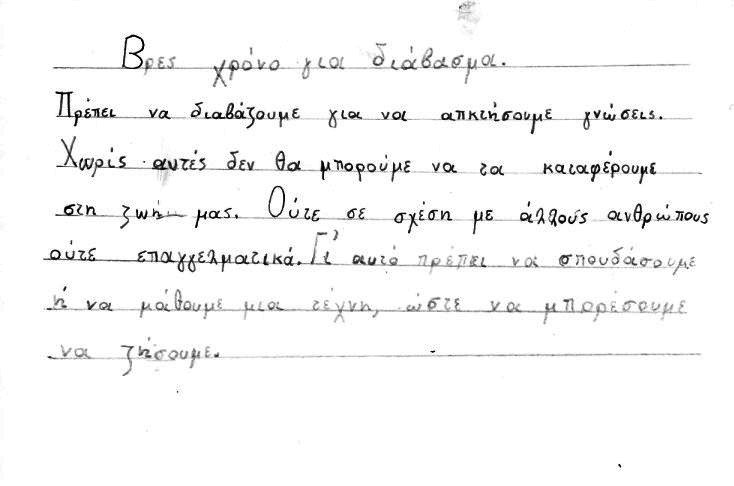 Βρες χρόνο για διάβασμα.
Πρέπει να διαβάζουμε για να απκτήσουμε γνώσεις.
Χωρίς αυτές δεν θα μπορούμε να τα καταφέρουμε
στη ζωή μας. Ούτε σε σχέση με άλλους ανθρώπους
ούτε επαγγελματικά. Γι' αυτό πρέπει να σπουδάσουμε
ή να μάθουμε μια τέχνη, ώστε να μπορέσουμε
να ζήσουμε.